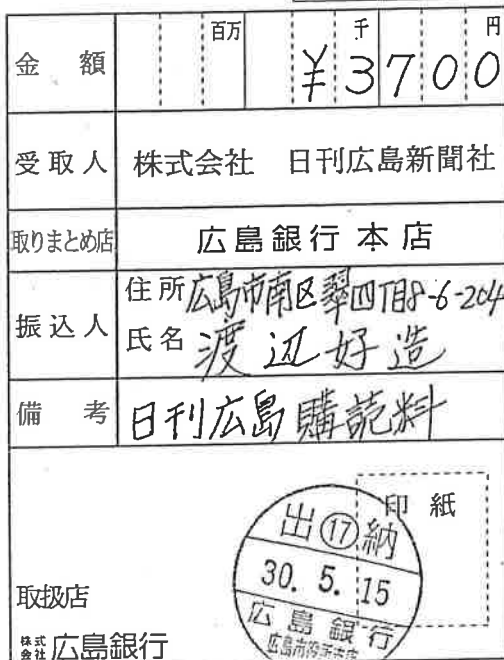 百万 千 円
金額 ¥3700
受取人 株式会社 日刊広島新聞社
取りまとめ店 広島銀行本店
住所 広島市南区翠四丁目8-6-204
振込人
氏名 渡辺好造
備考 日刊広島購読料
印紙
出⑰納
30. 5. 15
広島銀行
広島市役所支店
取扱店
株式会社 広島銀行